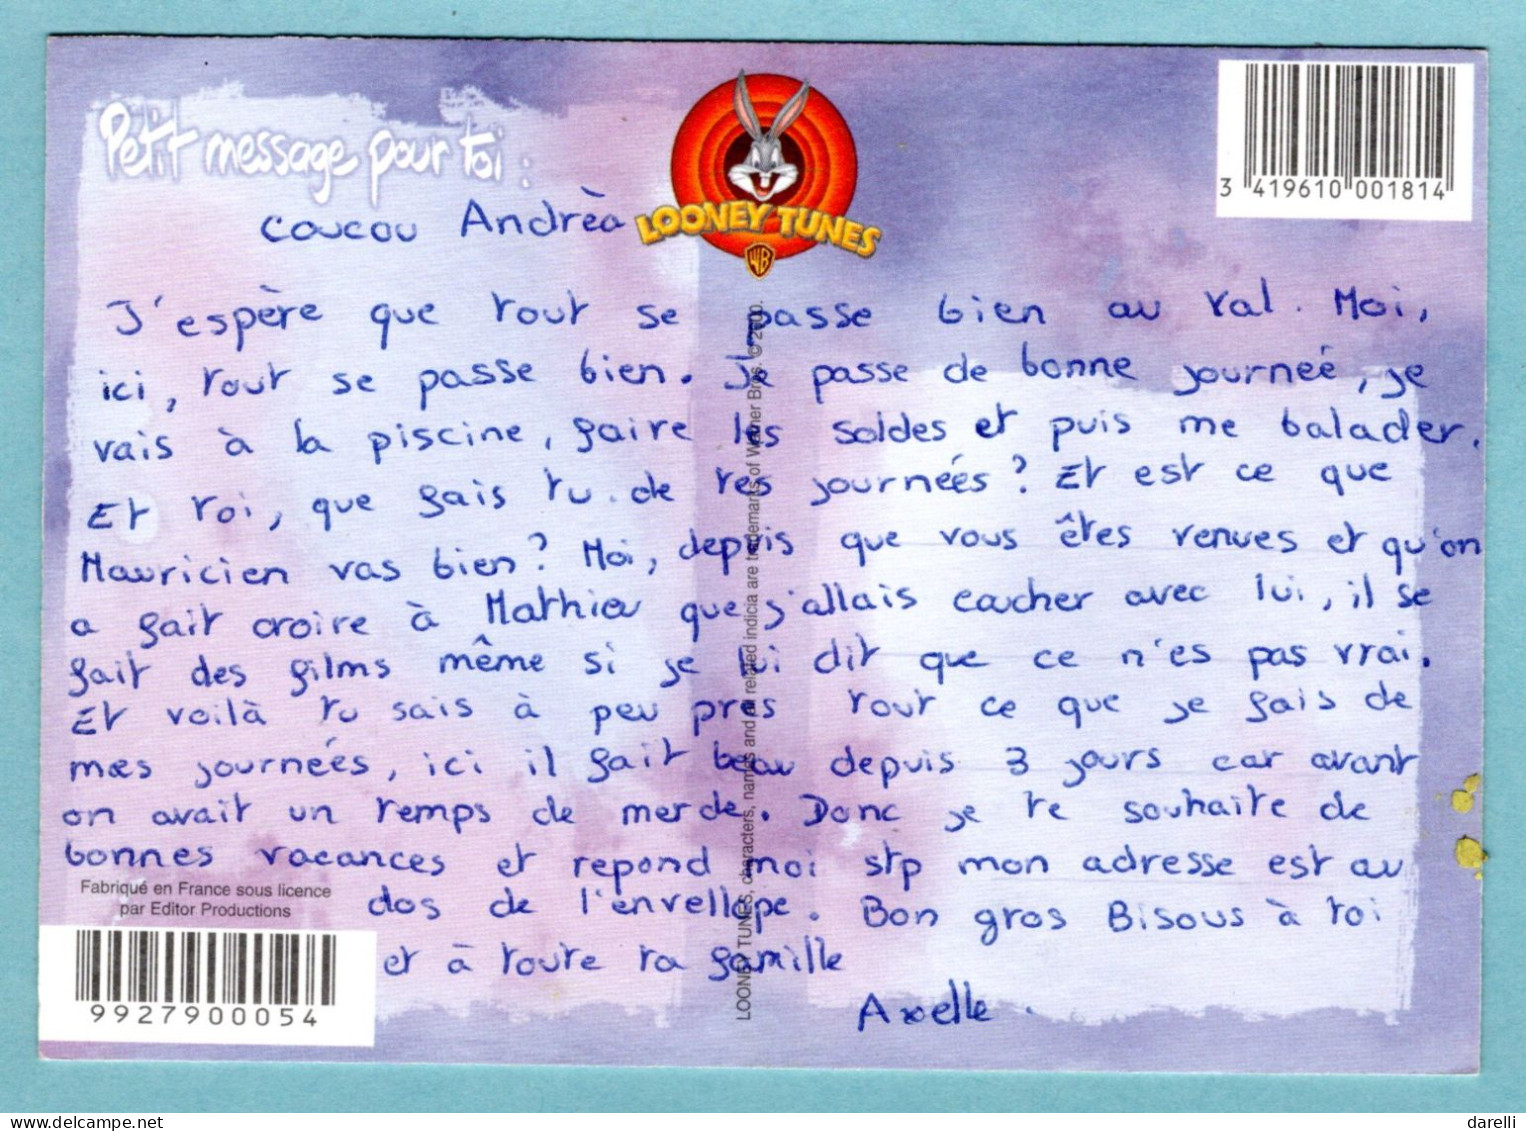 Petit message pour toi :
LOONEY TUNES
WB
3 419610 001814
coucou Andrèa
J'espère que tout se passe bien au val. Moi,
ici, tout se passe bien. Je passe de bonne journeé, je
vais à la piscine, faire les soldes et puis me balader.
Et toi, que fais tu de tes journeés ? Et est ce que
Mauricien vas bien ? Moi, depuis que vous êtes venues et qu'on
a fait croire à Mathieu que j'allais coucher avec lui, il se
fait des films même si je lui dit que ce n'es pas vrai.
Et voilà tu sais à peu pres tout ce que je fais de
mes journeés, ici il fait beau depuis 3 jours car avant
on avait un temps de merde. Donc je te souhaite de
bonnes vacances et repond moi stp mon adresse est au
dos de l'envellope. Bon gros Bisous à toi
et à toute ta famille
Axelle.
Fabriqué en France sous licence
par Editor Productions
9927900054
LOONEY TUNES, characters, names and all related indicia are trademarks of Warner Bros. © 2000.
delcampe.net
darelli